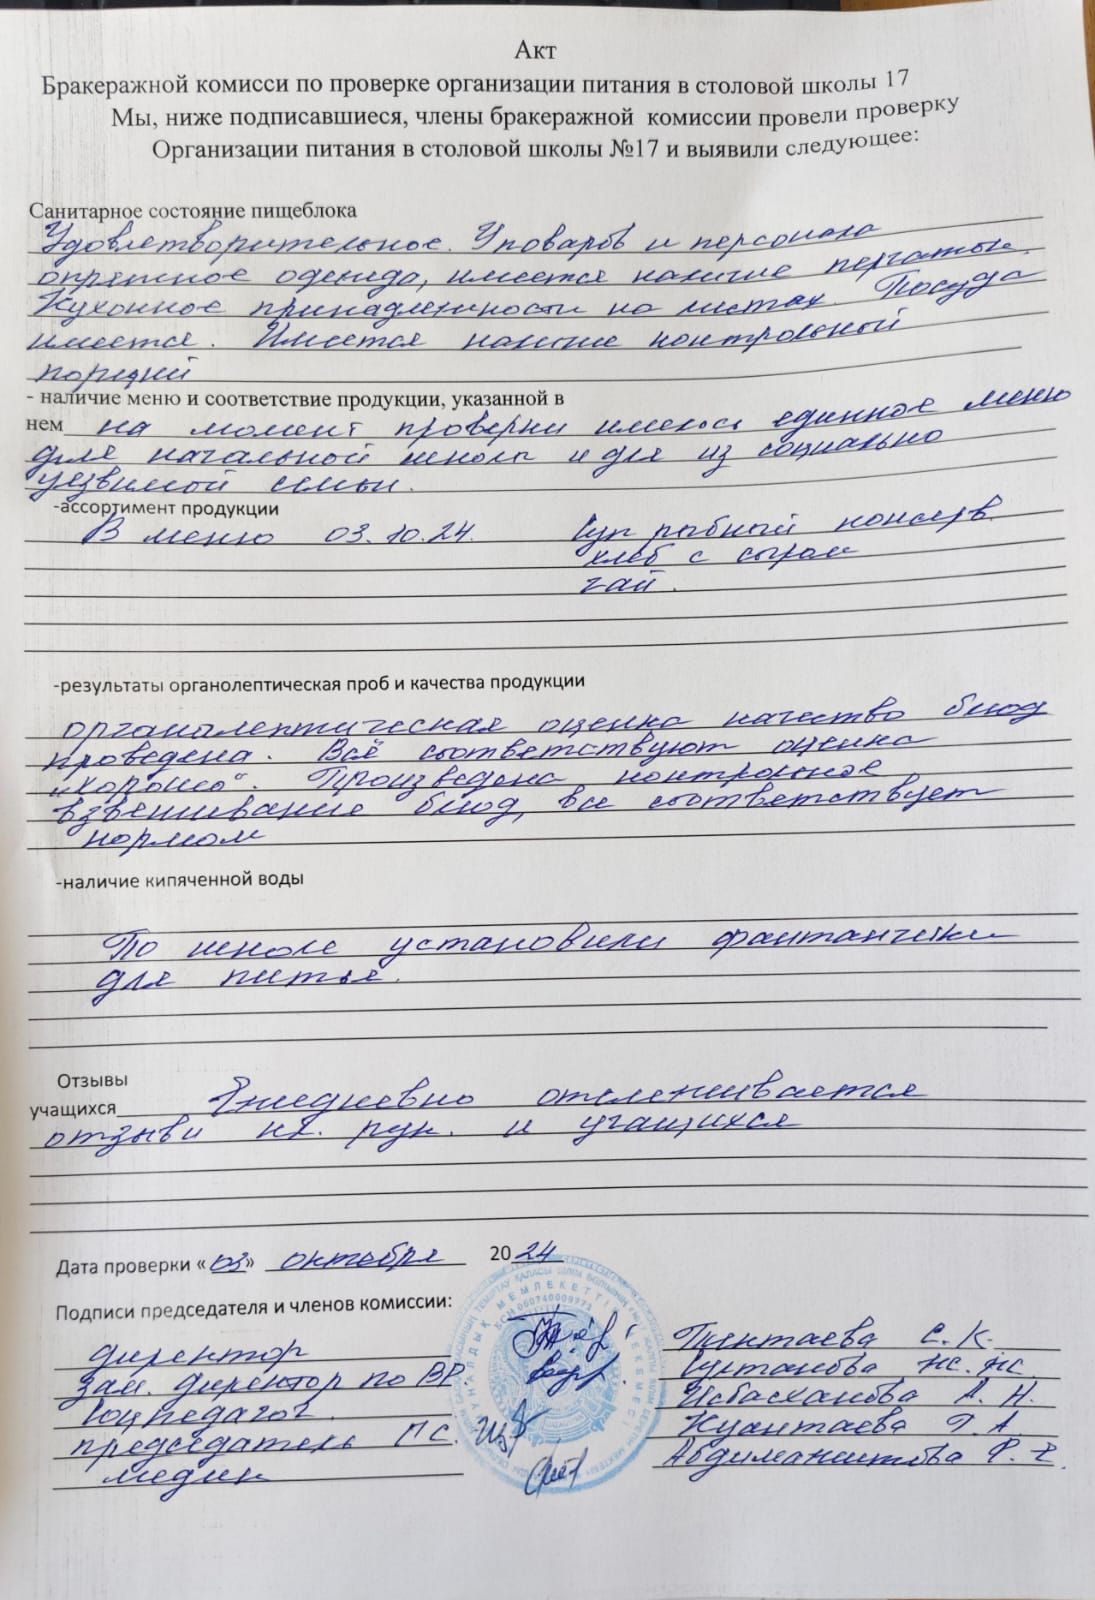 Акт
Бракеражной комисси по проверке организации питания в столовой школы 17
Мы, ниже подписавшиеся, члены бракеражной комиссии провели проверку
Организации питания в столовой школы №17 и выявили следующее:
Санитарное состояние пищеблока
Удовлетворительное. У поваров и персонала
опрятное одежда, имеется наличие перчаток.
Кухонное принадлежности на местах. Посуда
имеется. Имеется наличие контрольный
порций
- наличие меню и соответствие продукции, указанной в
нем на момент проверки имелось единное меню
для начальной школы и для из социально
уезвимой семьи.
-ассортимент продукции
В меню 03.10.24. Суп рыбный консерв.
хлеб с сыром
чай.
-результаты органолептическая проб и качества продукции
органолептическая оценка качество блюд
проведена. Всё соответствуют оценка
„хорошо“. Произведена контрольное
взвешивание блюд, все соответствует
нормам
-наличие кипяченной воды
По школе установили фантанчики
для питья.
Отзывы
учащихся Ежедневно отслеживается
отзыви кл. рук. и учащихся
Дата проверки «03» октября 2024
Подписи председателя и членов комиссии:
директор Пинтаева С.К.
Зам. директор по ВР Султанова
Соцпедагог Исбасханова А.Н.
председатель ПС. Куантаева Г.А.
медик